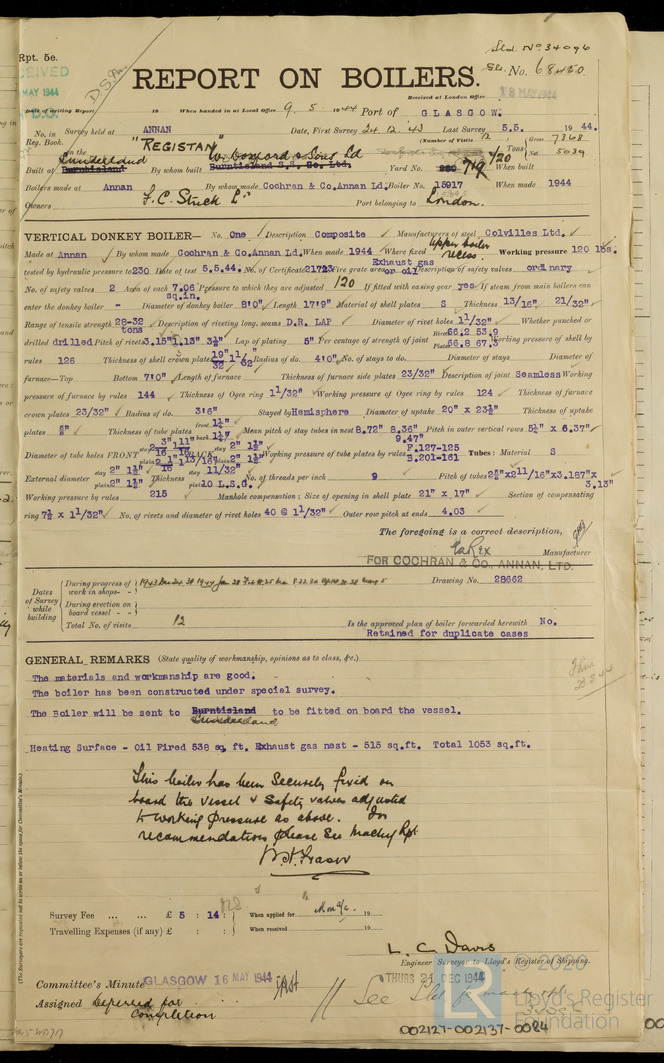 Rpt. 5e.
Sld. No 34096
D.S.Pn.
Sld. No. 68450
RECEIVED
MAY 1944
REPORT ON BOILERS.
Received at London Office
18 MAY 1944
Date of writing Report 19 When handed in at Local Office 9. 5. 1944 Port of GLASGOW.
No. in Survey held at ANNAN Date, First Survey 24.12.43 Last Survey 5.5. 1944.
Reg. Book. (Number of Visits 12)
on the "REGISTAN" Tons Gross 7368 Net 5039
Built at Burntisland Sunderland By whom built Burntisland S.S. Co. Ltd. W. Doxford & Sons Ld Yard No. 719 When built
Boilers made at Annan By whom made Cochran & Co. Annan Ld. Boiler No. 15917 When made 1944
Owners F. C. Strick Ld. Port belonging to London.
VERTICAL DONKEY BOILER— No. One Description Composite Manufacturers of steel Colvilles Ltd.
Made at Annan By whom made Cochran & Co. Annan Ld. When made 1944 Where fixed Upper boiler recess. Working pressure 120 lbs.
tested by hydraulic pressure to 230 Date of test 5.5.44. No. of Certificate 21723 Fire grate area Exhaust gas or oil Description of safety valves ordinary
No. of safety valves 2 Area of each 7.06 sq.in. Pressure to which they are adjusted 120 If fitted with easing gear yes If steam from main boilers can
enter the donkey boiler - Diameter of donkey boiler 8'0" Length 17'9" Material of shell plates S Thickness 13/16" 21/32"
Range of tensile strength 28-32 tons Description of riveting long. seams D.R. LAP Diameter of rivet holes 1 1/32" Whether punched or
drilled drilled Pitch of rivets 3.15" 1.13" 3½" Lap of plating 5" Per centage of strength of joint Rivets 66.2 53.9 Plates 56.8 67.3 Working pressure of shell by
rules 126 Thickness of shell crown plates 19/32" 1 1/32" Radius of do. 4'0" No. of stays to do. Diameter of stays Diameter of
furnace—Top Bottom 7'0" Length of furnace Thickness of furnace side plates 23/32" Description of joint Seamless Working
pressure of furnace by rules 144 Thickness of Ogee ring 1 1/32" Working pressure of Ogee ring by rules 124 Thickness of furnace
crown plates 23/32" Radius of do. 3'6" Stayed by Hemisphere Diameter of uptake 20" x 23½" Thickness of uptake
plates ⅝" Thickness of tube plates front back Mean pitch of stay tubes in nest 8.72" 8.36" 9.47" Pitch in outer vertical rows 5¼" x 6.37"
Diameter of tube holes FRONT stay plain BACK stay plain Working pressure of tube plates by rules F.127-125 B.201-161 Tubes: Material S
External diameter stay 2" plain 2" Thickness stay 11/32" plain 10 L.S.G. No. of threads per inch 9 Pitch of tubes 3.187" x 3.13"
Working pressure by rules 215 Manhole compensation: Size of opening in shell plate 21" x 17" Section of compensating
ring 7½ x 1 1/32" No. of rivets and diameter of rivet holes 40 @ 1 1/32" Outer row pitch at ends 4.03
The foregoing is a correct description,
Manufacturer
FOR COCHRAN & CO., ANNAN, LTD.
Dates of Survey while building
During progress of work in shops - -
During erection on board vessel - -
Total No. of visits 12
Drawing No. 28662
Is the approved plan of boiler forwarded herewith No.
Retained for duplicate cases
GENERAL REMARKS (State quality of workmanship, opinions as to class, &c.)
The materials and workmanship are good.
The boiler has been constructed under special survey.
The Boiler will be sent to Burntisland Sunderland to be fitted on board the vessel.
Heating Surface - Oil Fired 538 sq. ft. Exhaust gas nest - 515 sq.ft. Total 1053 sq.ft.
This boiler has been securely fixed on
board the vessel & safety valves adjusted
to working pressure as above. For
recommendations please see Machy Rpt.
W.H. Fraser
Survey Fee ... ... £ 5 : 14 : When applied for 19
Travelling Expenses (if any) £ : : When received 19
L. C. Davis
Engineer Surveyor to Lloyd's Register of Shipping.
Committee's Minute GLASGOW 16 MAY 1944
THURS 21 DEC 1944
Assigned Deferred for
completion
See Sld
(The Surveyors are requested not to write on or below the space for Committee's Minute.)
© 2020
LR
Lloyd's Register
Foundation
002127-002137-0084